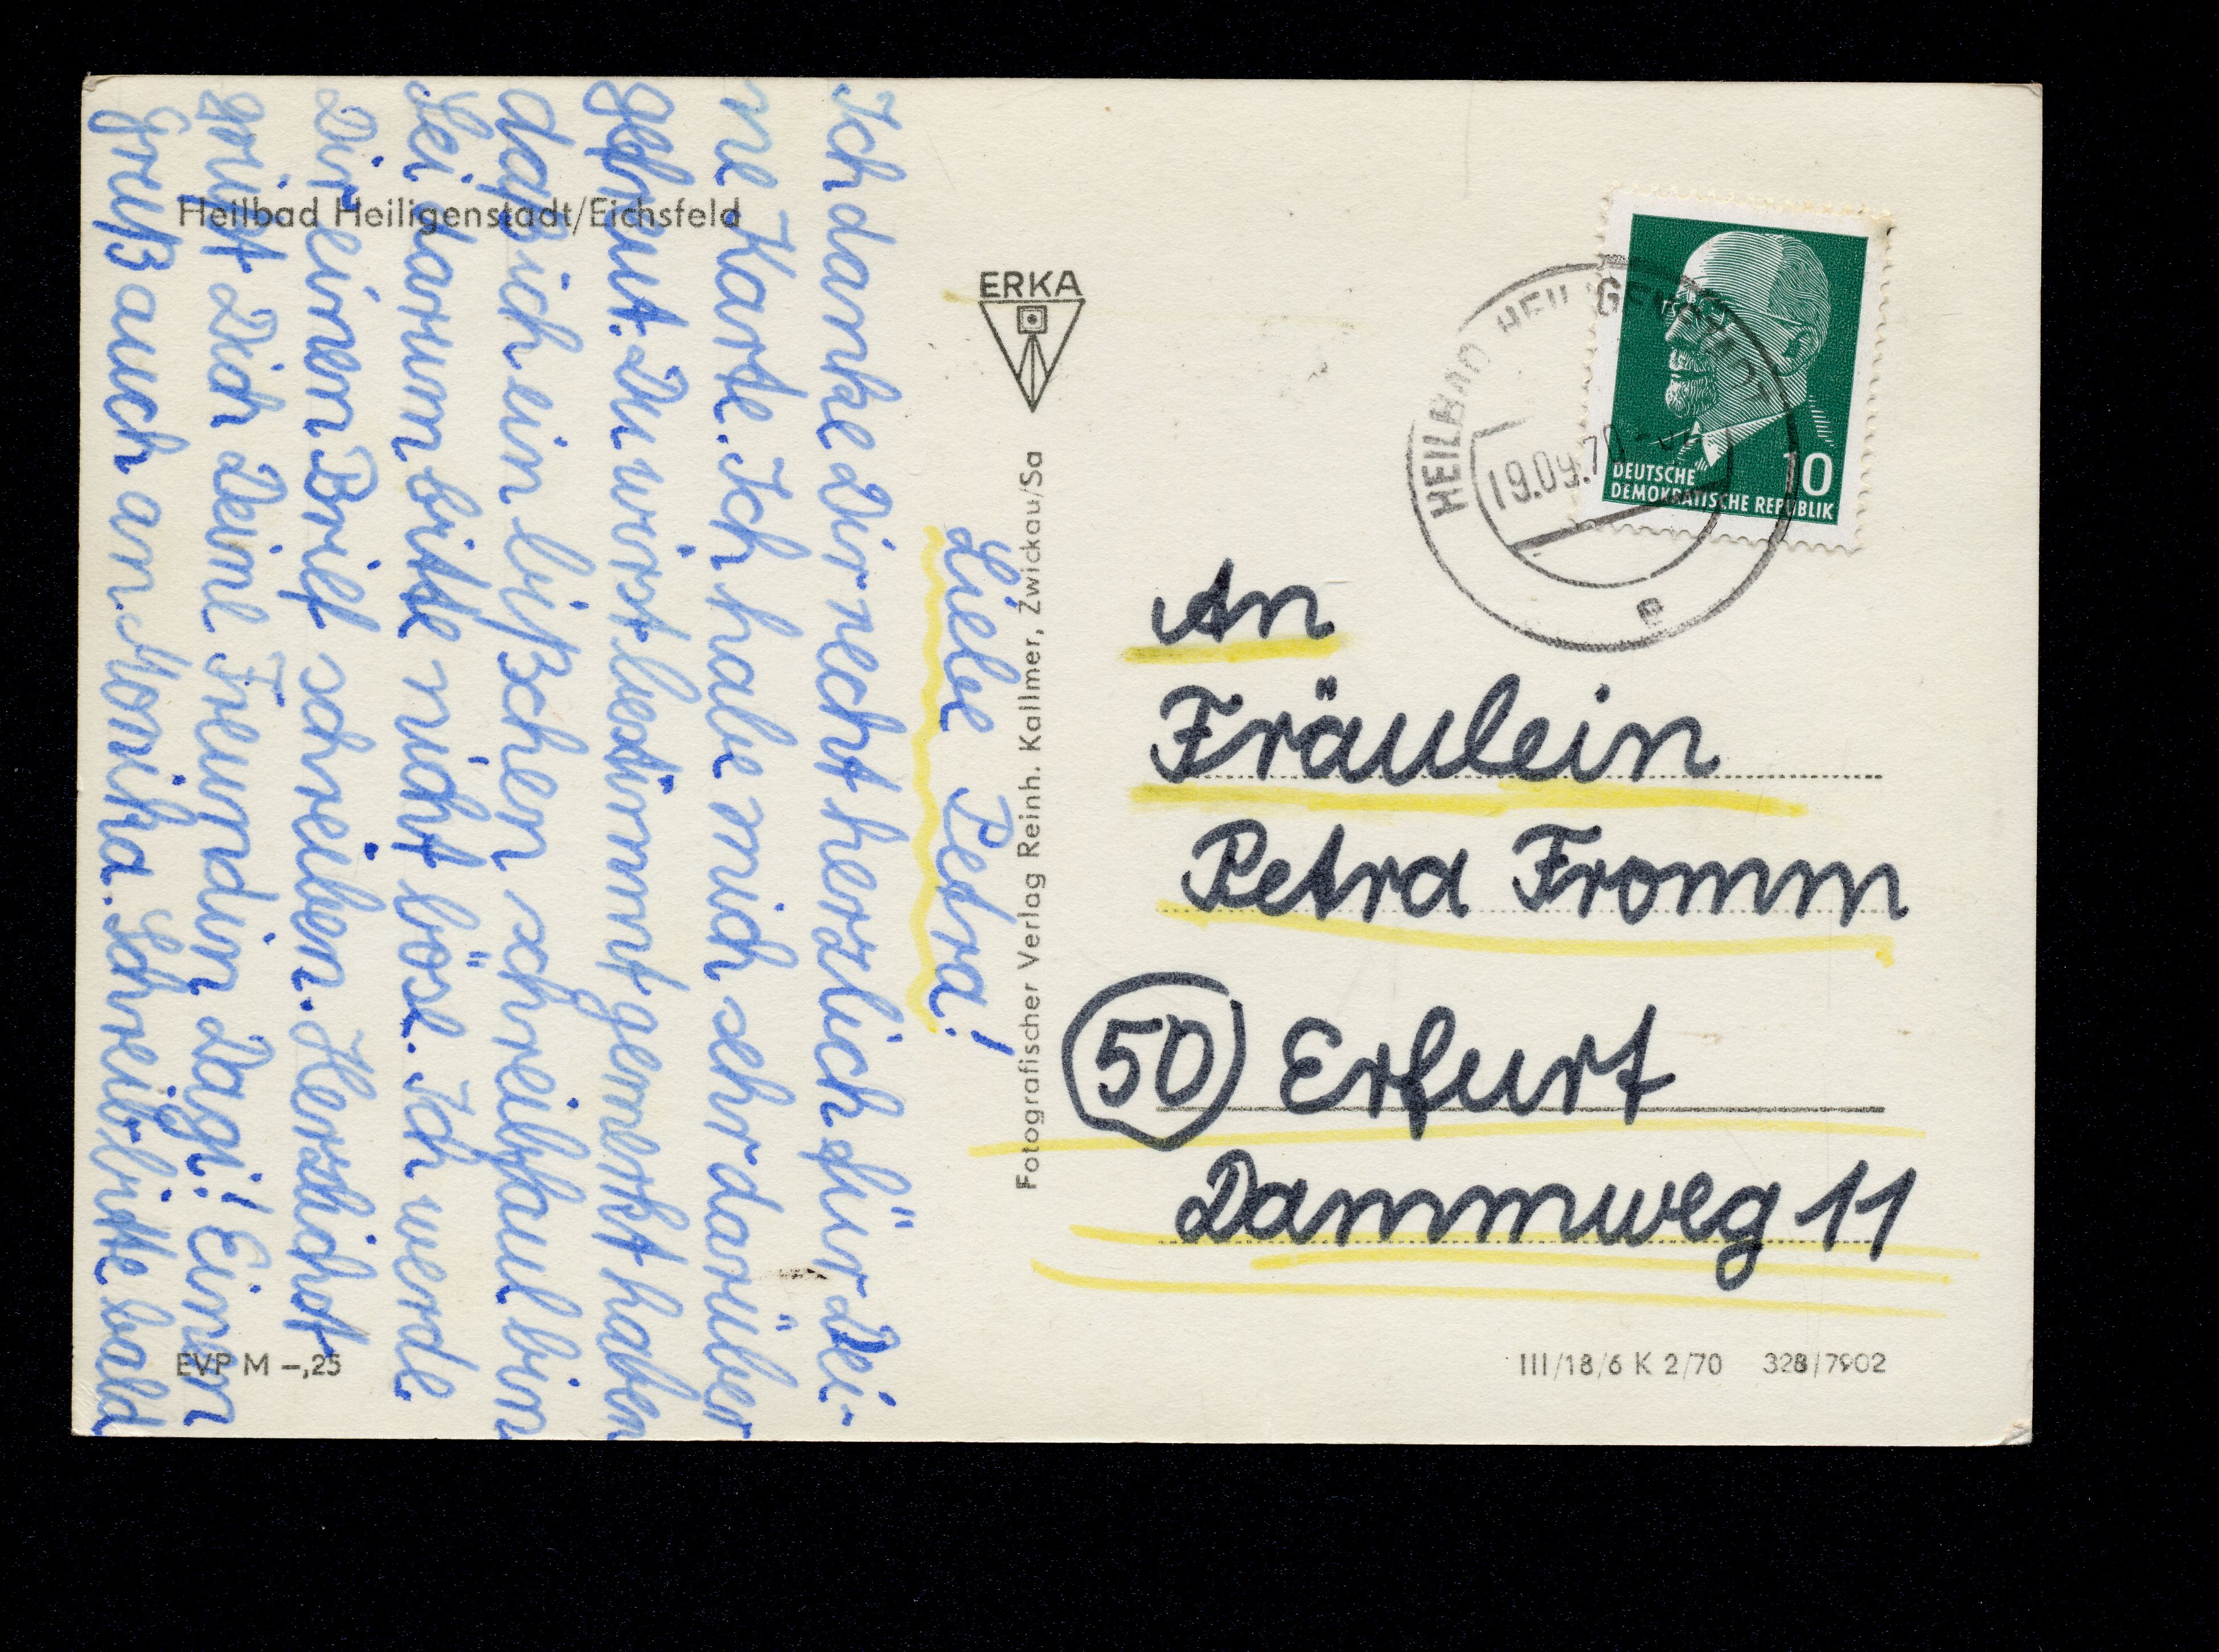 Heilbad Heiligenstadt/Eichsfeld
Liebe Petra!
Ich danke Dir recht herzlich für Dei-
ne Karte. Ich habe mich sehr darüber
gefreut. Du wirst bestimmt gemerkt haben
daß ich ein bißchen schreibfaul bin
Sei darum bitte nicht böse. Ich werde
Dir einen Brief schreiben. Herzlichst
grüßt Dich Deine Freundin Dagi! Einen
Gruß auch an Monika. Schreib bitte bald
EVP M –,25
ERKA
Fotografischer Verlag Reinh. Kallmer, Zwickau/Sa
HEILBAD HEILIGENSTADT
19.09.70
e
10
DEUTSCHE
DEMOKRATISCHE REPUBLIK
An
Fräulein
Petra Fromm
50 Erfurt
Dammweg 11
III/18/6 K 2/70 328/7902